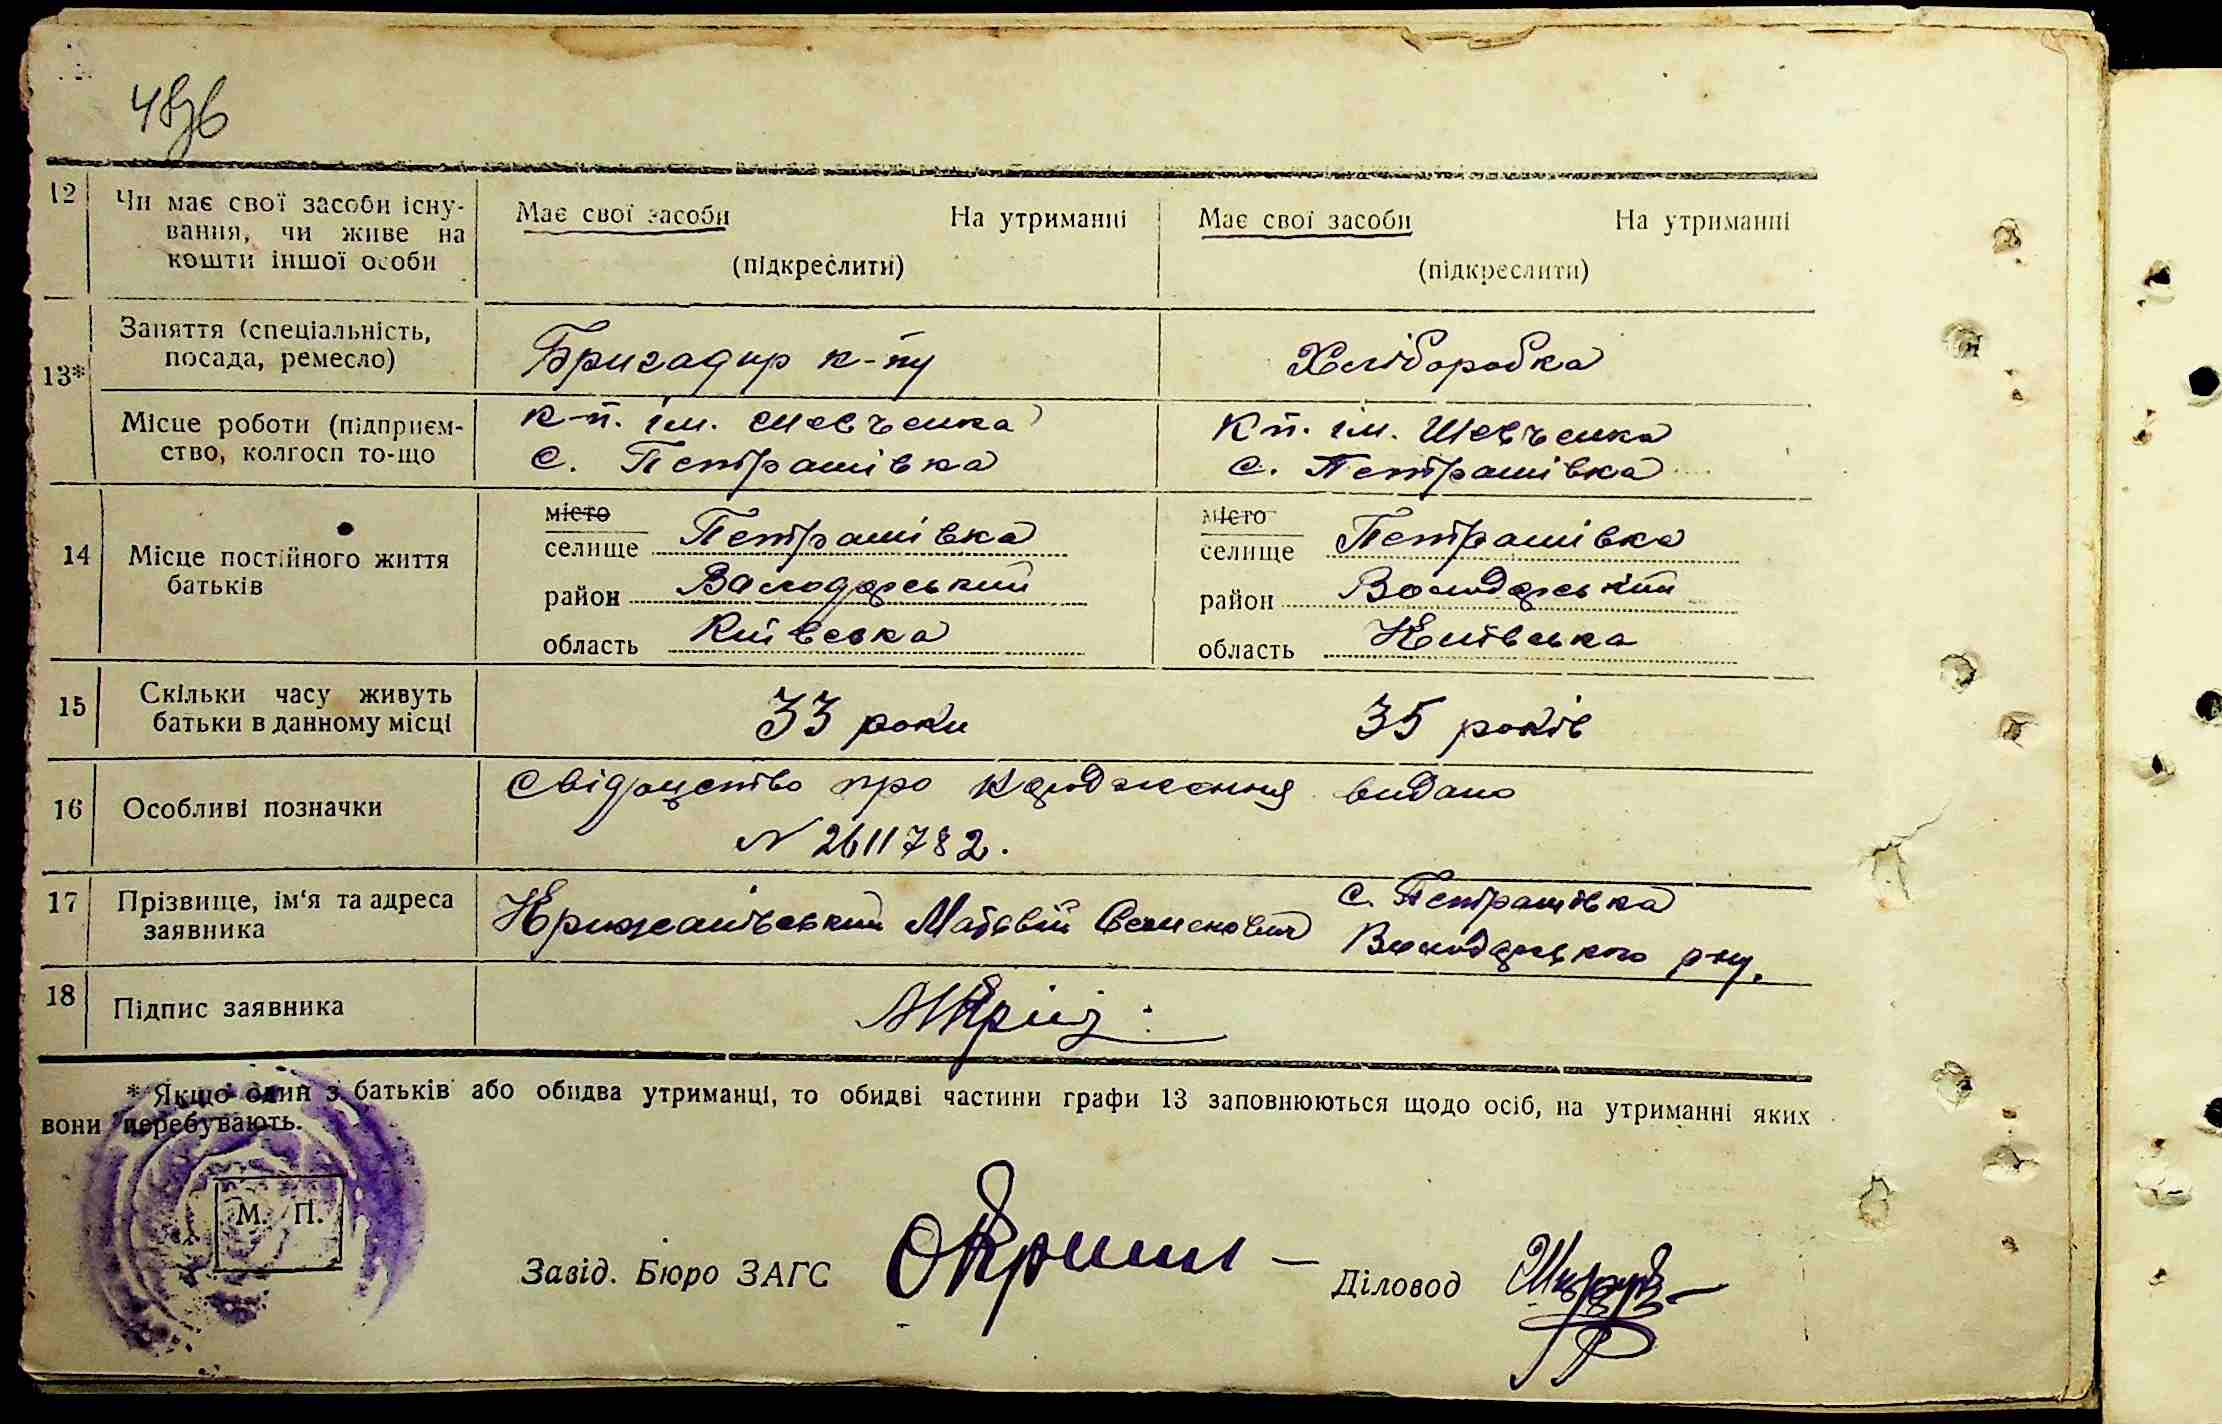 12 Чи має свої засоби існу-
вання, чи живе на
кошти іншої особи
Має свої засоби На утриманні
(підкреслити)
Має свої засоби На утриманні
(підкреслити)
13* Заняття (спеціальність,
посада, ремесло)
Бригадир к-пу
Хліборобка
Місце роботи (підприєм-
ство, колгосп то-що
к-п. ім. Шевченка
с. Петрашівка
К п. ім. Шевченка
с. Петрашівка
14 Місце постійного життя
батьків
місто
селище Петрашівка
район Володарський
область Київська
місто
селище Петрашівка
район Володарський
область Київська
15 Скільки часу живуть
батьки в данному місці
33 роки
35 років
16 Особливі позначки
Свідоцтво про народження видано
N 2611782.
17 Прізвище, ім‘я та адреса
заявника
Крижанівський Матвій Семенович
с. Петрашівка
Володарського р-ну.
18 Підпис заявника
* Якщо один з батьків або обидва утриманці, то обидві частини графи 13 заповнюються щодо осіб, на утриманні яких
вони перебувають.
М. П.
Завід. Бюро ЗАГС
Діловод